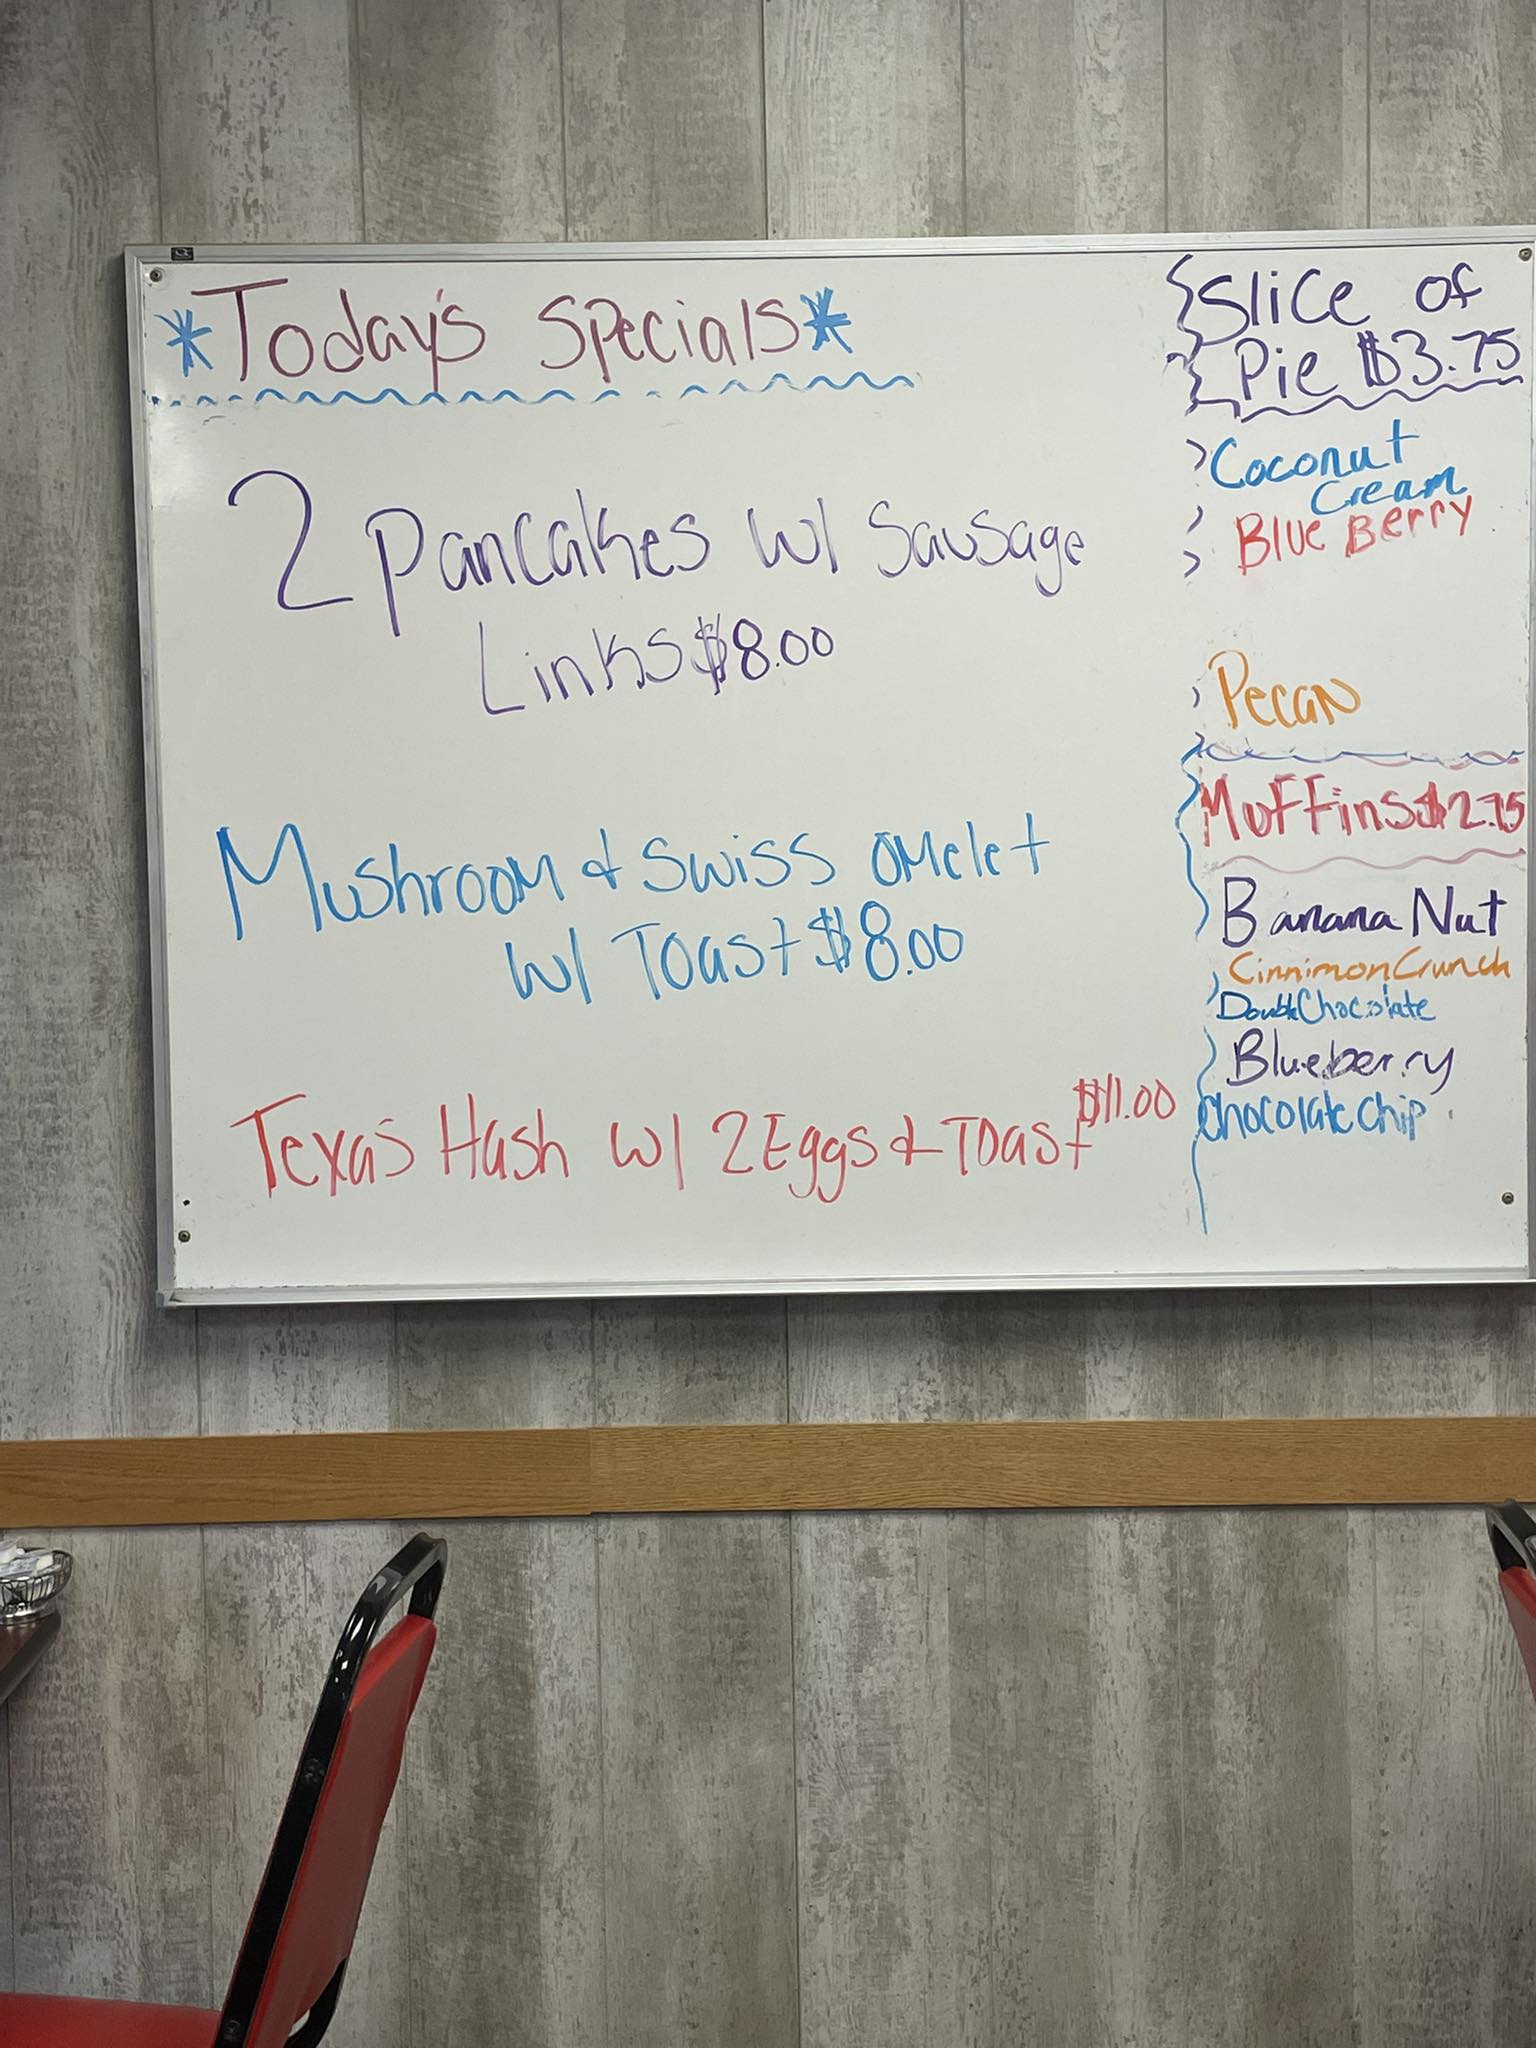 *Today's Specials*
2 Pancakes w/ Sausage
Links $8.00
Mushroom & Swiss Omelet
w/ Toast $8.00
Texas Hash w/ 2 Eggs & Toast $11.00
Slice of
Pie $3.75
Coconut
Cream
Blue Berry
Pecan
Muffins $2.75
Banana Nut
Cinnimon Crunch
Double Chocolate
Blueberry
Chocolate Chip